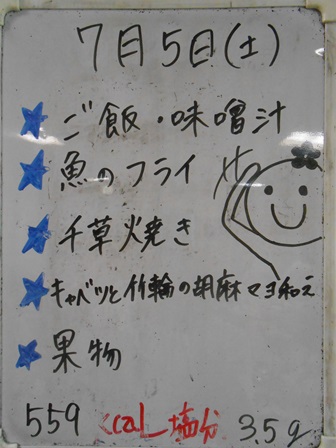 7月5日(土)
ご飯・味噌汁
魚のフライ
千草焼き
キャベツと竹輪の胡麻マヨ和え
果物
559 kcal 塩分 3.5g